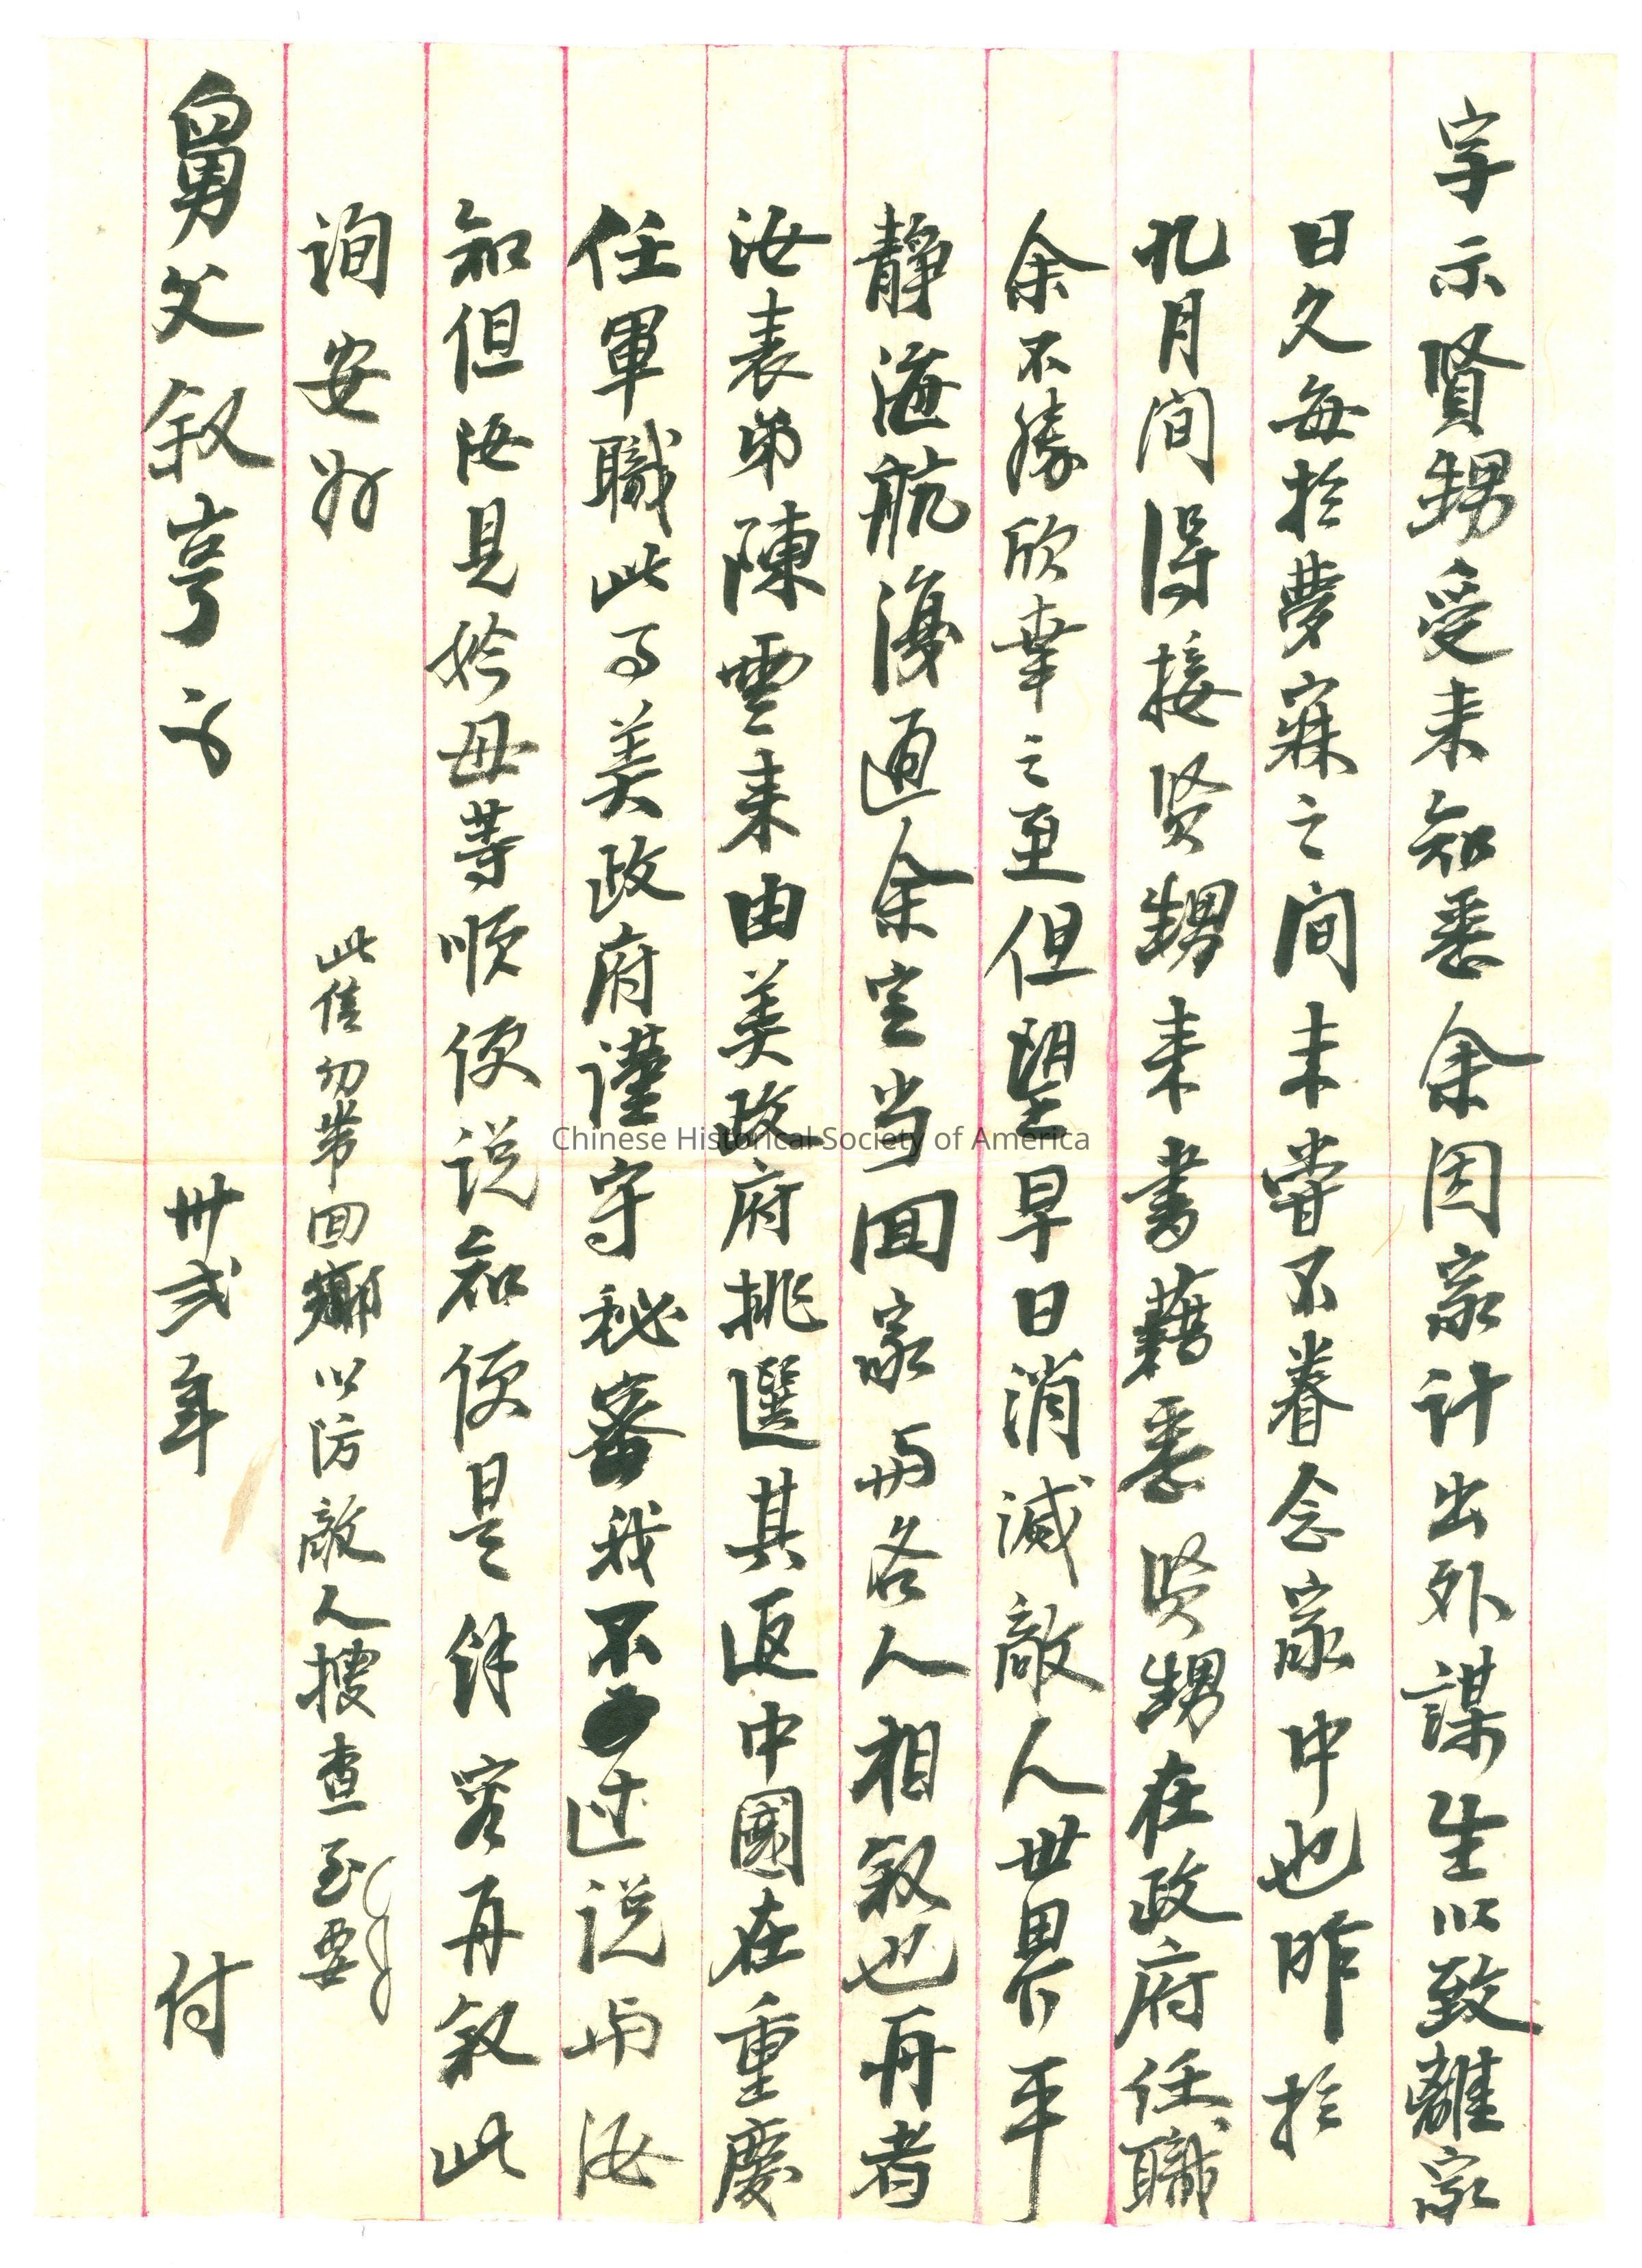 字示賢甥受来知悉余因家计出外謀生以致離家
日久每於夢寐之间未嘗不眷念家中也昨於
九月间得接贤甥来書藉悉贤甥在政府任職
余不勝欣幸之至但望早日消滅敵人世界平
静海航復通余定当回家与各人相叙也再者
汝表弟陳雲来由美政府挑選其返中國在重慶
任軍職此乃美政府谨守秘密我不过说与汝
知但汝見妗母等顺便说知便是余容再叙此
询安好
此信勿带回鄉以防敵人搜查至要
舅父叙亨字
卅弍年
付
Chinese Historical Society of America